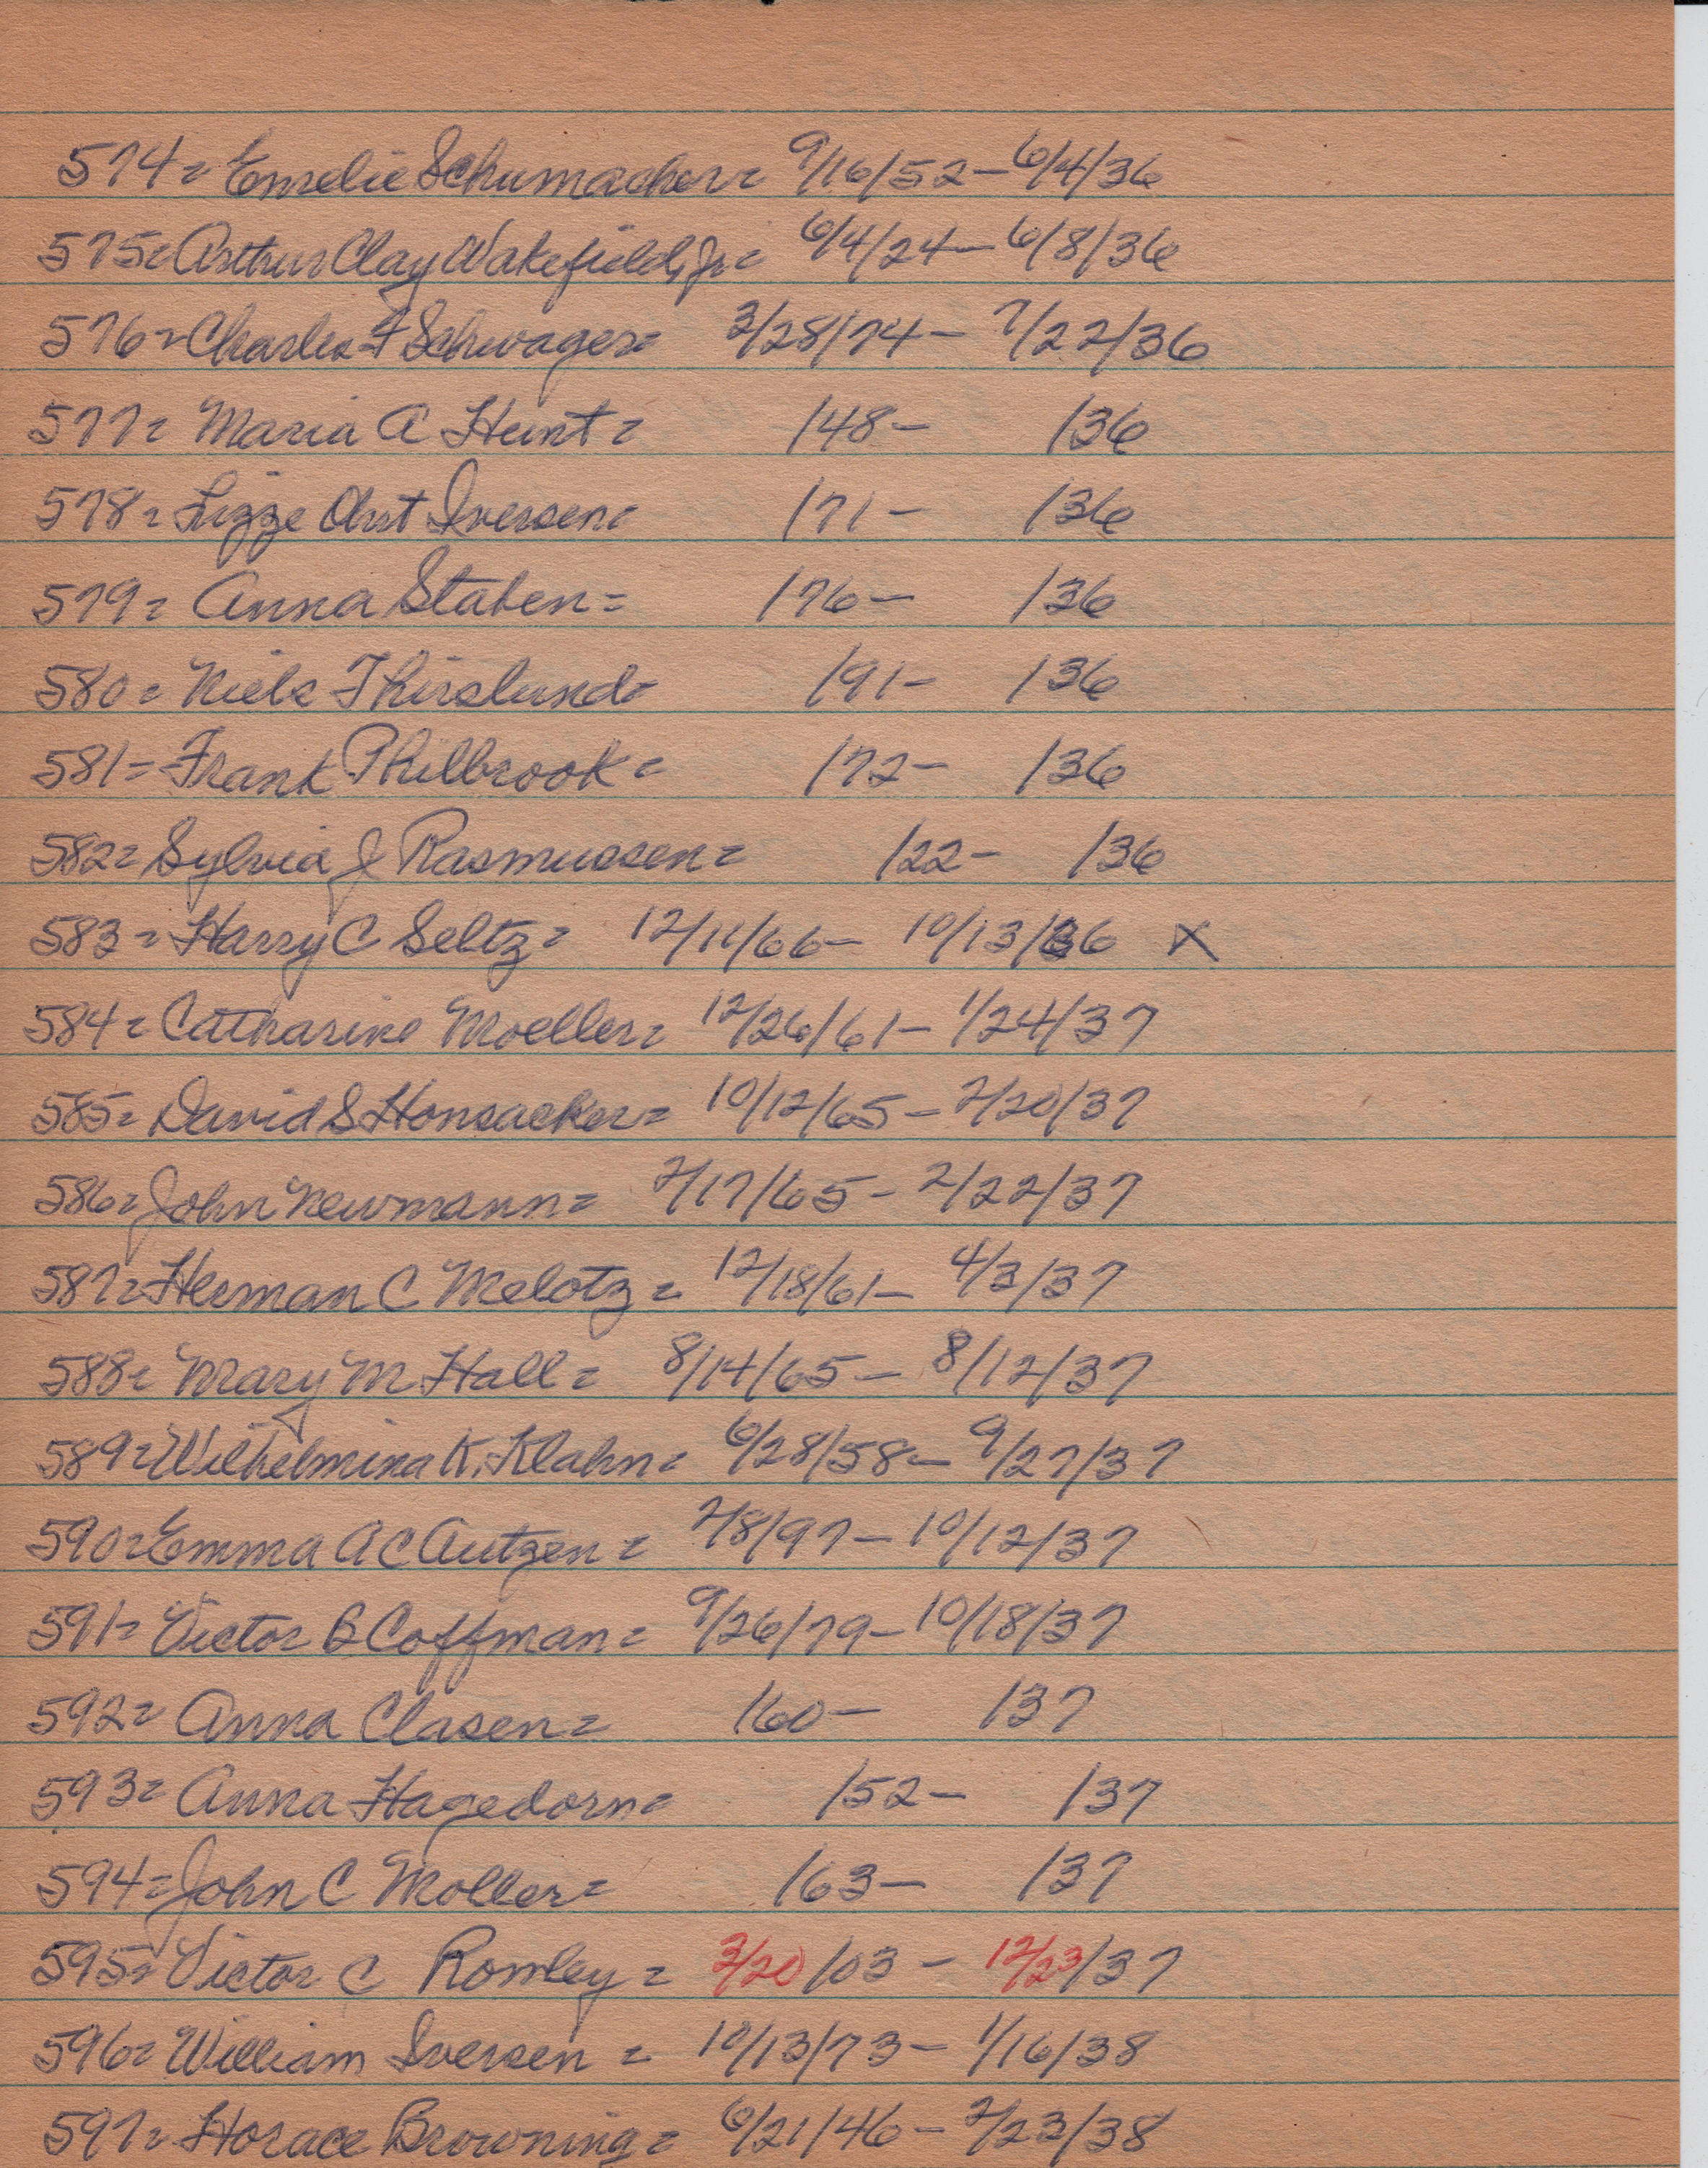 574= Emelie Schumacher= 9/16/52- 6/4/36
575= Arthur Clay Wakefield, Jr= 6/4/24- 6/8/36
576= Charles F Schwager= 3/28/74- 7/22/36
577= Maria A Hunt= /48- /36
578= Lizze Obst Iversen= /71- /36
579= Anna Staben= /76- /36
580= Niels Thirslund= /91- /36
581= Frank Philbrook= /72- /36
582= Sylvia J Rasmussen= /22- /36
583= Harry C Seltz= 12/11/66- 10/13/36 X
584= Catharine Moeller= 12/26/61- 1/24/37
585= David S Honsacker= 10/12/65- 2/20/37
586= John Newmann= 2/17/65- 2/22/37
587= Herman C Melotz= 12/18/61- 4/3/37
588= Mary M Hall= 8/14/65- 8/12/37
589= Wilhelmina K. Klahn= 6/28/58- 9/27/37
590= Emma A C Autzen= 2/8/97- 10/12/37
591= Victor B Coffman= 9/26/79- 10/18/37
592= Anna Clasen= /60- /37
593= Anna Hagedorn= /52- /37
594= John C Moller= /63- /37
595= Victor C Romley= 3/20/03- 12/23/37
596= William Iversen= 10/13/73- 1/16/38
597= Horace Browning= 6/21/46- 2/23/38